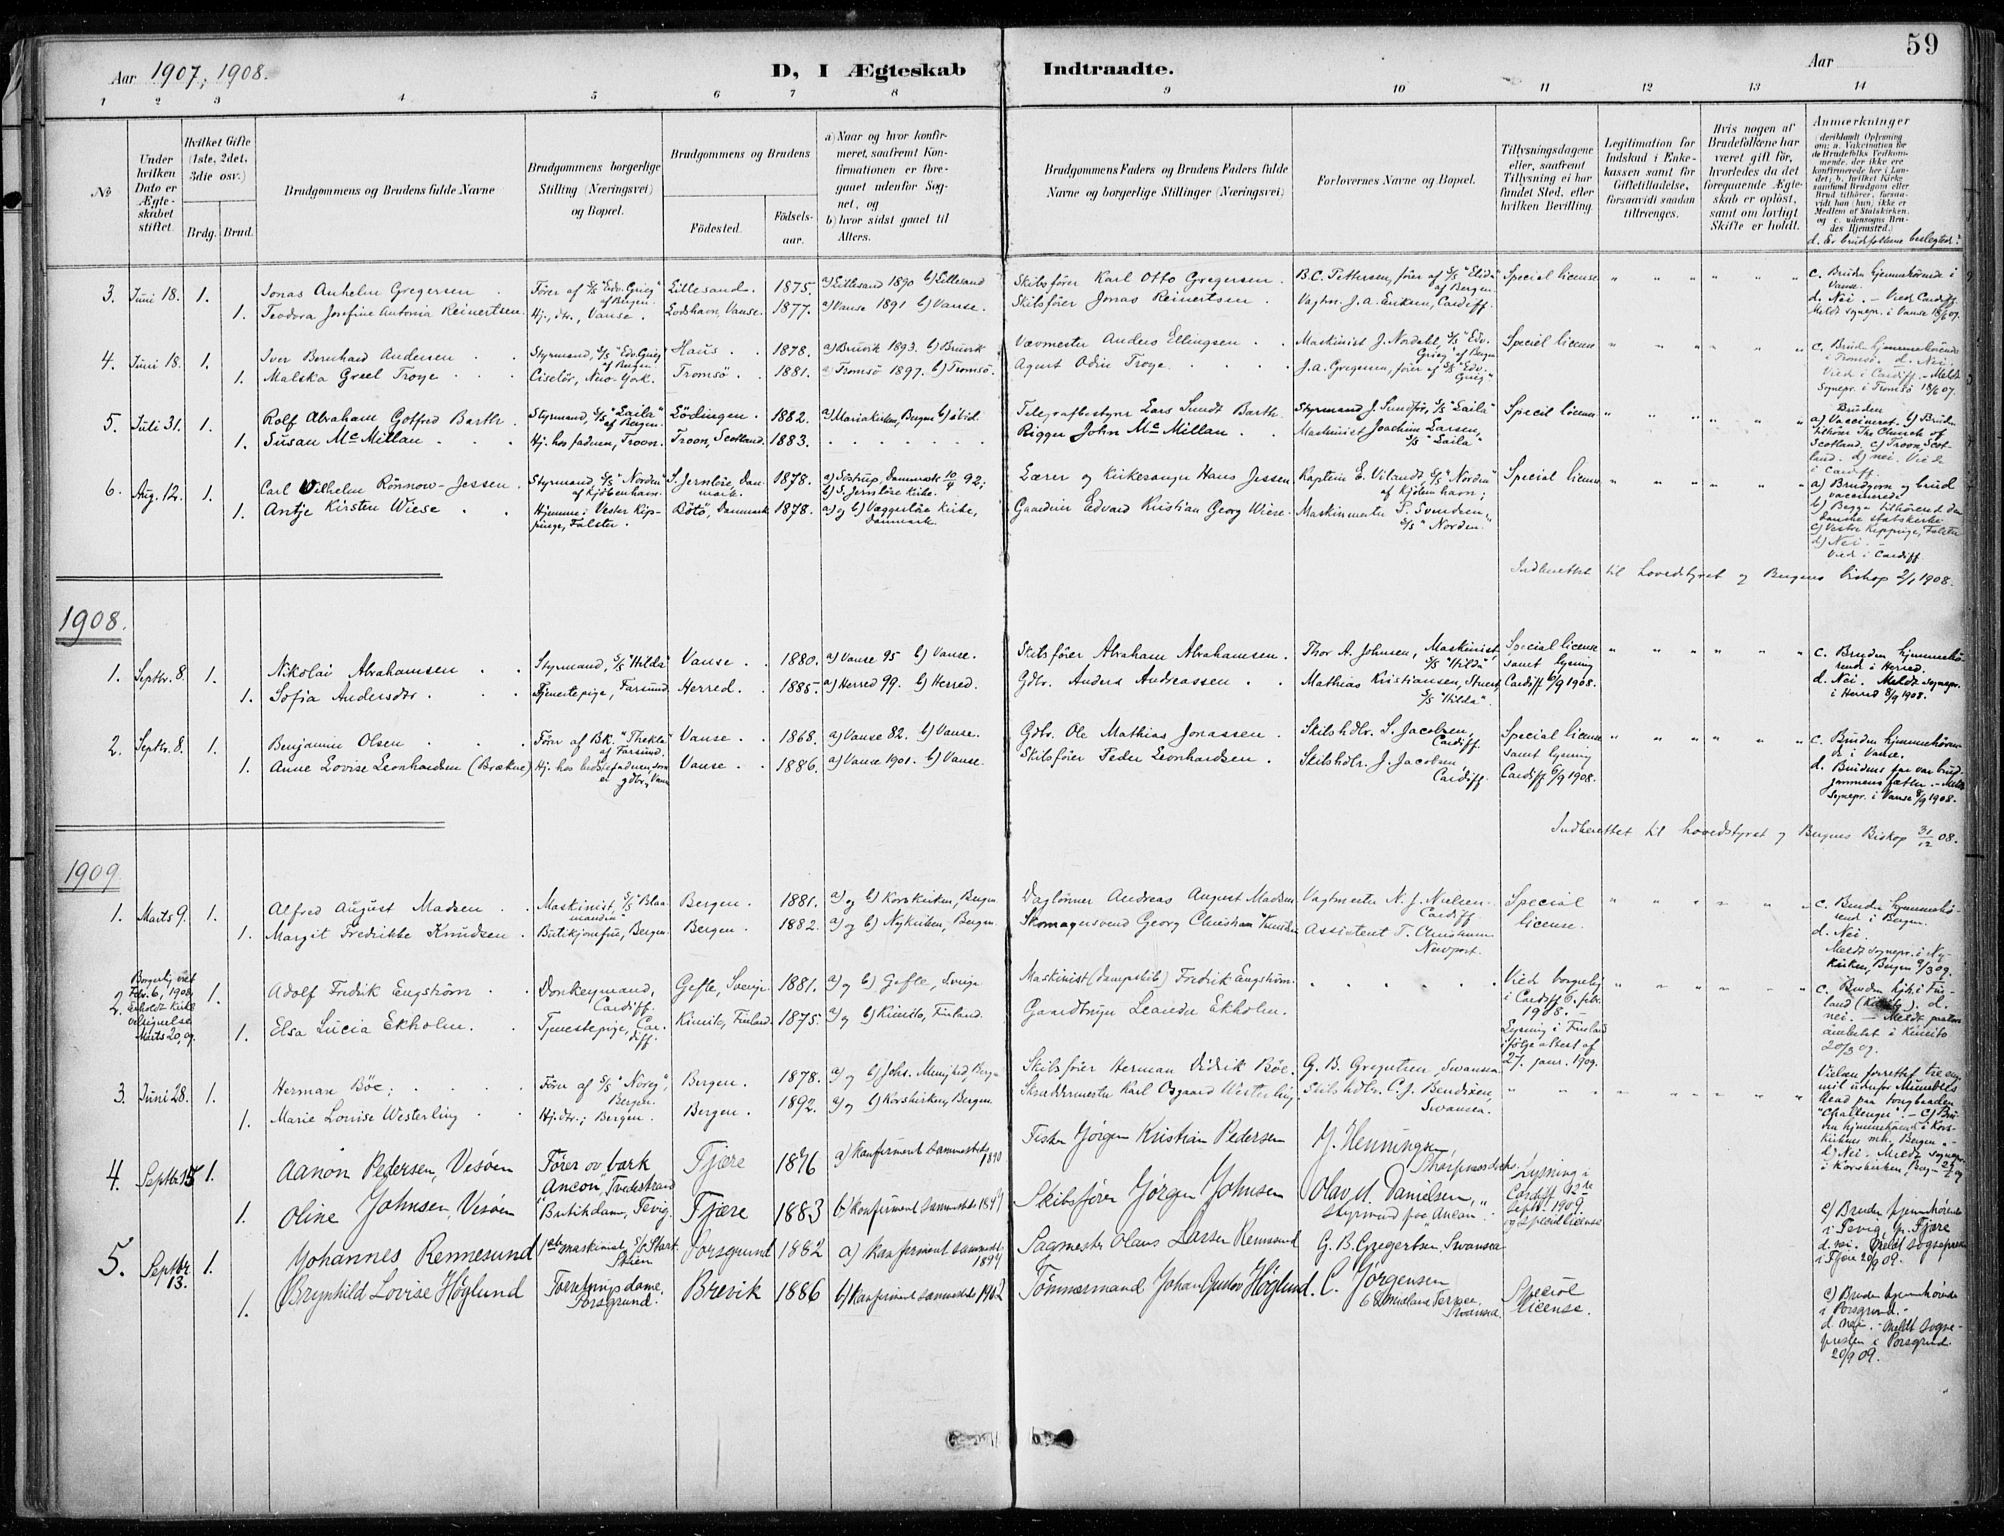 59
Aar 1907, 1908.
D, I Ægteskab Indtraadte.
Aar
1 2 3 4 5 6 7 8 9 10 11 12 13 14
No
Under hvilken Dato er Ægteskabet stiftet.
Hvilket Gifte (1ste, 2det, 3die osv.)
Brdg. Brud.
Brudgommens og Brudens fulde Navne
Brudgommens borgerlige Stilling (Næringsvei) og Bopæl.
Brudgommens og Brudens
Fødested.
Fødselsaar.
a) Naar og hvor konfirmeret, saafremt Konfirmationen er foregaaet udenfor Sognet, og
b) hvor sidst gaaet til Alters.
Brudgommens Faders og Brudens Faders fulde Navne og borgerlige Stillinger (Næringsvei)
Forlovernes Navne og Bopæl.
Tillysningsdagene eller, saafremt Tillysning ei har fundet Sted, efter hvilken Bevilling.
Legitimation for Indskud i Enkekassen samt for Giftetilladelse, forsaavidt saadan tiltrænges.
Hvis nogen af Brudefolkene har været gift før, hvorledes da det foregaaende Ægteskab er opløst, samt om lovligt Skifte er holdt.
Anmærkninger
d. Er brudefolkene beslegtede?
3. Juni 18. 1. Jonas Anhelm Gregersen Fører af S/S "Edv. Grieg" af Bergen. Lillesand. 1875. a) Lillesand 1890 b) Lillesand Skibsfører Karl Otto Gregersen B.C. Pettersen, fører af S/S "Elida" af Bergen Special license c. Bruden hjemmehørende i Vanse.
1. Teodora Josefine Antonia Reinertsen Hj. dtr., Vanse. Lodshavn, Vanse. 1877. a) Vanse 1891 b) Vanse. Skibsfører Jonas Reinertsen Vagtm. J. A. Eriksen, Cardiff. d. Nei. – Viede Cardiff. Meldt sognepr. i Vanse 18/6 07.
4. Juni 18. 1. Iver Bernhard Andersen Styrmand, S/S "Edv. Grieg" af Bergen Haus 1878. a) Bruvik 1893. b) Bruvik Vævmester Anders Ellingsen Maskinist J. Nordahl, S/S "Edv. Grieg" af Bergen Special license c. Bruden hjemmehørende i Tromsø. d. Nei.
1. Malska Greel Troye Ciselør, New-York. Tromsø 1881. a) Tromsø 1897. b) Tromsø. Agent Odin Troye J. A. Gregersen, fører af S/S "Edv. Grieg" Viede i Cardiff. – Meldt Sognepr. i Tromsø 18/6 07.
5. Juli 31. 1. Rolf Abraham Gotfred Barth Styrmand, S/S "Laila" af Bergen. Lödingen 1882. a) Mariakirken, Bergen b) ibid. Telegrafbestyrer Lars Sundt Barth Styrmand J. Sundför, S/S "Laila" Special license Bruden a) Vaccineret. b) Bruden tilhører The Church of Scotland, c) Troon, Scotland. d) nei. Viede i Cardiff.
1. Susan McMillan Hj. hos faderen, Troon. Troon, Scotland. 1883. Rigger John McMillan Maskinist Joachim Larsen, S/S "Laila"
6. Aug. 12. 1. Carl Vilhelm Rönnow-Jessen Styrmand, S/S "Norden" af Kjöbenhavn. S. Jernløse, Danmark. 1878. b) S. Jernløse Kirke. Lærer og Kirkesanger Hans Jessen Kaptein E. Vilandt, S/S "Norden" af Kjöbenhavn; Special license a) Brudgom og brud vaccinerede
1. Antje Kirsten Wiese Hjemme i Vester Kippinge, Falster. Bötö, Danmark 1878. a) og b) Væggerløse Kirke, Danmark. Gaardeier Edvard Kristian Georg Wiese. Maskinmester S. Svendsen, S/S "Norden". b) Begge tilhørende den danske statskirke c) Vestre Kippinge, Falster d) Nei. – Viet i Cardiff.
Indberettet til hovedstyret og Bergens biskop 2/1 1908.
1908.
1. Septbr. 8. 1. Nikolai Abrahamsen Styrmand, S/S "Hilda" Vanse 1880. a) Vanse 95 b) Vanse. Skibsfører Abraham Abrahamsen. Thor A. Johnsen, Maskinist S/S "Hilda" Special license samt lysning Cardiff 6/9 1908. c. Bruden hjemmehørende i Herred.
1. Sofia Andersdtr. Tjenestepige, Farsund. Herred. 1885. a) Herred 99. b) Herred. Gdbr. Anders Andreassen Mathias Kristiansen, S/S "Hilda". d. Nei. Meldt sognepr. i Herred 8/9 1908.
2. Septbr. 8. 1. Benjamin Olsen Fører af Bk. "Thekla" af Farsund. Vanse 1868. a) Vanse 82. b) Vanse. Gdbr. Ole Mathias Jonassen Skibshdlr. S. Jacobsen, Cardiff. Special license samt lysning Cardiff 6/9 1908. c. Bruden hjemmehørende i Vanse.
1. Anne Lovise Leonhardsen (Brække) Hj. hos bedstefaderen som er gdbr., Vanse Vanse 1886. a) Vanse 1901. b) Vanse. Skibsfører Peder Leonhardsen Skibshdlr. J. Jacobsen Cardiff. d. Brudens far var brudgommens fætter. – Meldt Sognepr. i Vanse 8/9 1908.
Indberettet til hovedstyret og Bergens Biskop 31/12 08.
1909
1. Marts 9. 1. Alfred August Madsen Maskinist, S/S "Blaamanden" Bergen. 1881. a) og b) Korskirken, Bergen Daglønner Andreas August Madsen Vagtmester N. J. Nielsen Cardiff Special license. c. Bruden hjemmehørende i Bergen.
1. Margit Fredrikke Knudsen Butikjomfru, Bergen. Bergen. 1882. a) og b) Nykirken, Bergen. Skomagersvend Georg Christian Knudsen Assistent T. Christensen Newport. d. Nei. Meldt sognepr. i Nykirken, Bergen 9/3 09.
2. Borgerlig viet Febr. 6, 1908, Erholdt Kirkl. velsignelse Marts 20, 09. 1. Adolf Fredrik Engström Donkeymand, Cardiff. Gefle, Sverige 1881. a) og b) Gefle, Sverige Maskinist (dampskib) Fredrik Engström Viede borgerlig i Cardiff 6. febr. 1908. – Lysning i Finland ifølge attest af 27. janr. 1909. c. Bruden hjh. i Finland (Kimito). d. nei. – Meldt pastorsämbetet i Kimito 20/3 09.
1. Elsa Lucia Ekholm Tjenestepige, Cardiff. Kimito, Finland. 1875. a) og b) Kimito, Finland. Gaardbruger Leander Ekholm.
3. Juni 28. 1. Herman Böe; Fører af S/S "Noreg", Bergen. Bergen. 1878. a) og b) Johs. Menighed, Bergen Skibsfører Herman Didrik Böe. G. B. Gregertsen, Swansea Vielsen forrettet tre eng. mil udenfor Mumbles Head paa tougbaaden "Challenger". – c) Bruden hjemmehørende i Korskirkens mh. Bergen. –
1. Marie Louise Westerling Hj. dtr.; Bergen. Bergen. 1892. a) og b) Korskirken, Bergen. Skræddermester Karl Osgaard Westerling. Skibshdlr. C. J. Bendixen, Swansea. d) Nei. Meldt sognepr. i Korskirken, Brg.
4. Septbr 15 1. Aanon Pedersen, Vesøen Fører av bark Ancon, Tvedestrand Fjære 1876 a) Konfirmert sammesteds 1890 Fisker Jørgen Kristian Pedersen Y. Henningsen Lysning i Cardiff 12te Septr. 1909. og Special license
1. Oline Johnsen, Vesøen Butikdam, Fevig. Fjære 1883 b) Konfirmert sammesteds Skibsfører Jørgen Johnsen Olav M. Danielsen, styrmand paa "Ancon". c) Bruden hjemmehørende i Fevig pr. Fjære d. nei. Meldt sognepresten i Fjære 20/9 09.
5. Septbr 13. 1. Johannes Rennesund 1ste maskinist S/S Start Skien Porsgrund 1882 a) Konfirmert sammesteds 1897 Sagmester Olaus Larsen Rennesund G. B. Gregertsen, Swansea Special license.
1. Brynhild Lovise Høglund Forretningsdame, Porsgrund. Brevik 1886 b) Konfirmert sammesteds 1902 Tømmermand Johan Gustav Høglund. C. Jørgensen Swansea. c) Bruden hjemmehørende i Porsgrund. – d. nei. – Meldt sognepresten i Porsgrund 20/9 09.